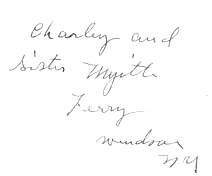 Charley and
Sister Myrtle
Ferry
Windsor
NY